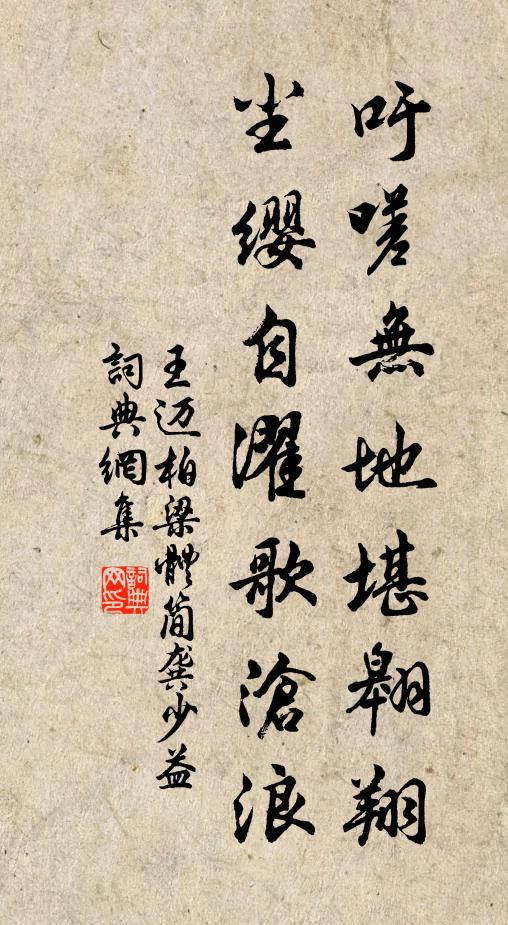 吁嗟無地堪翱翔
尘缨自濯歌滄浪
王迈柏梁體简龚少益
詞典網集
詞典網印